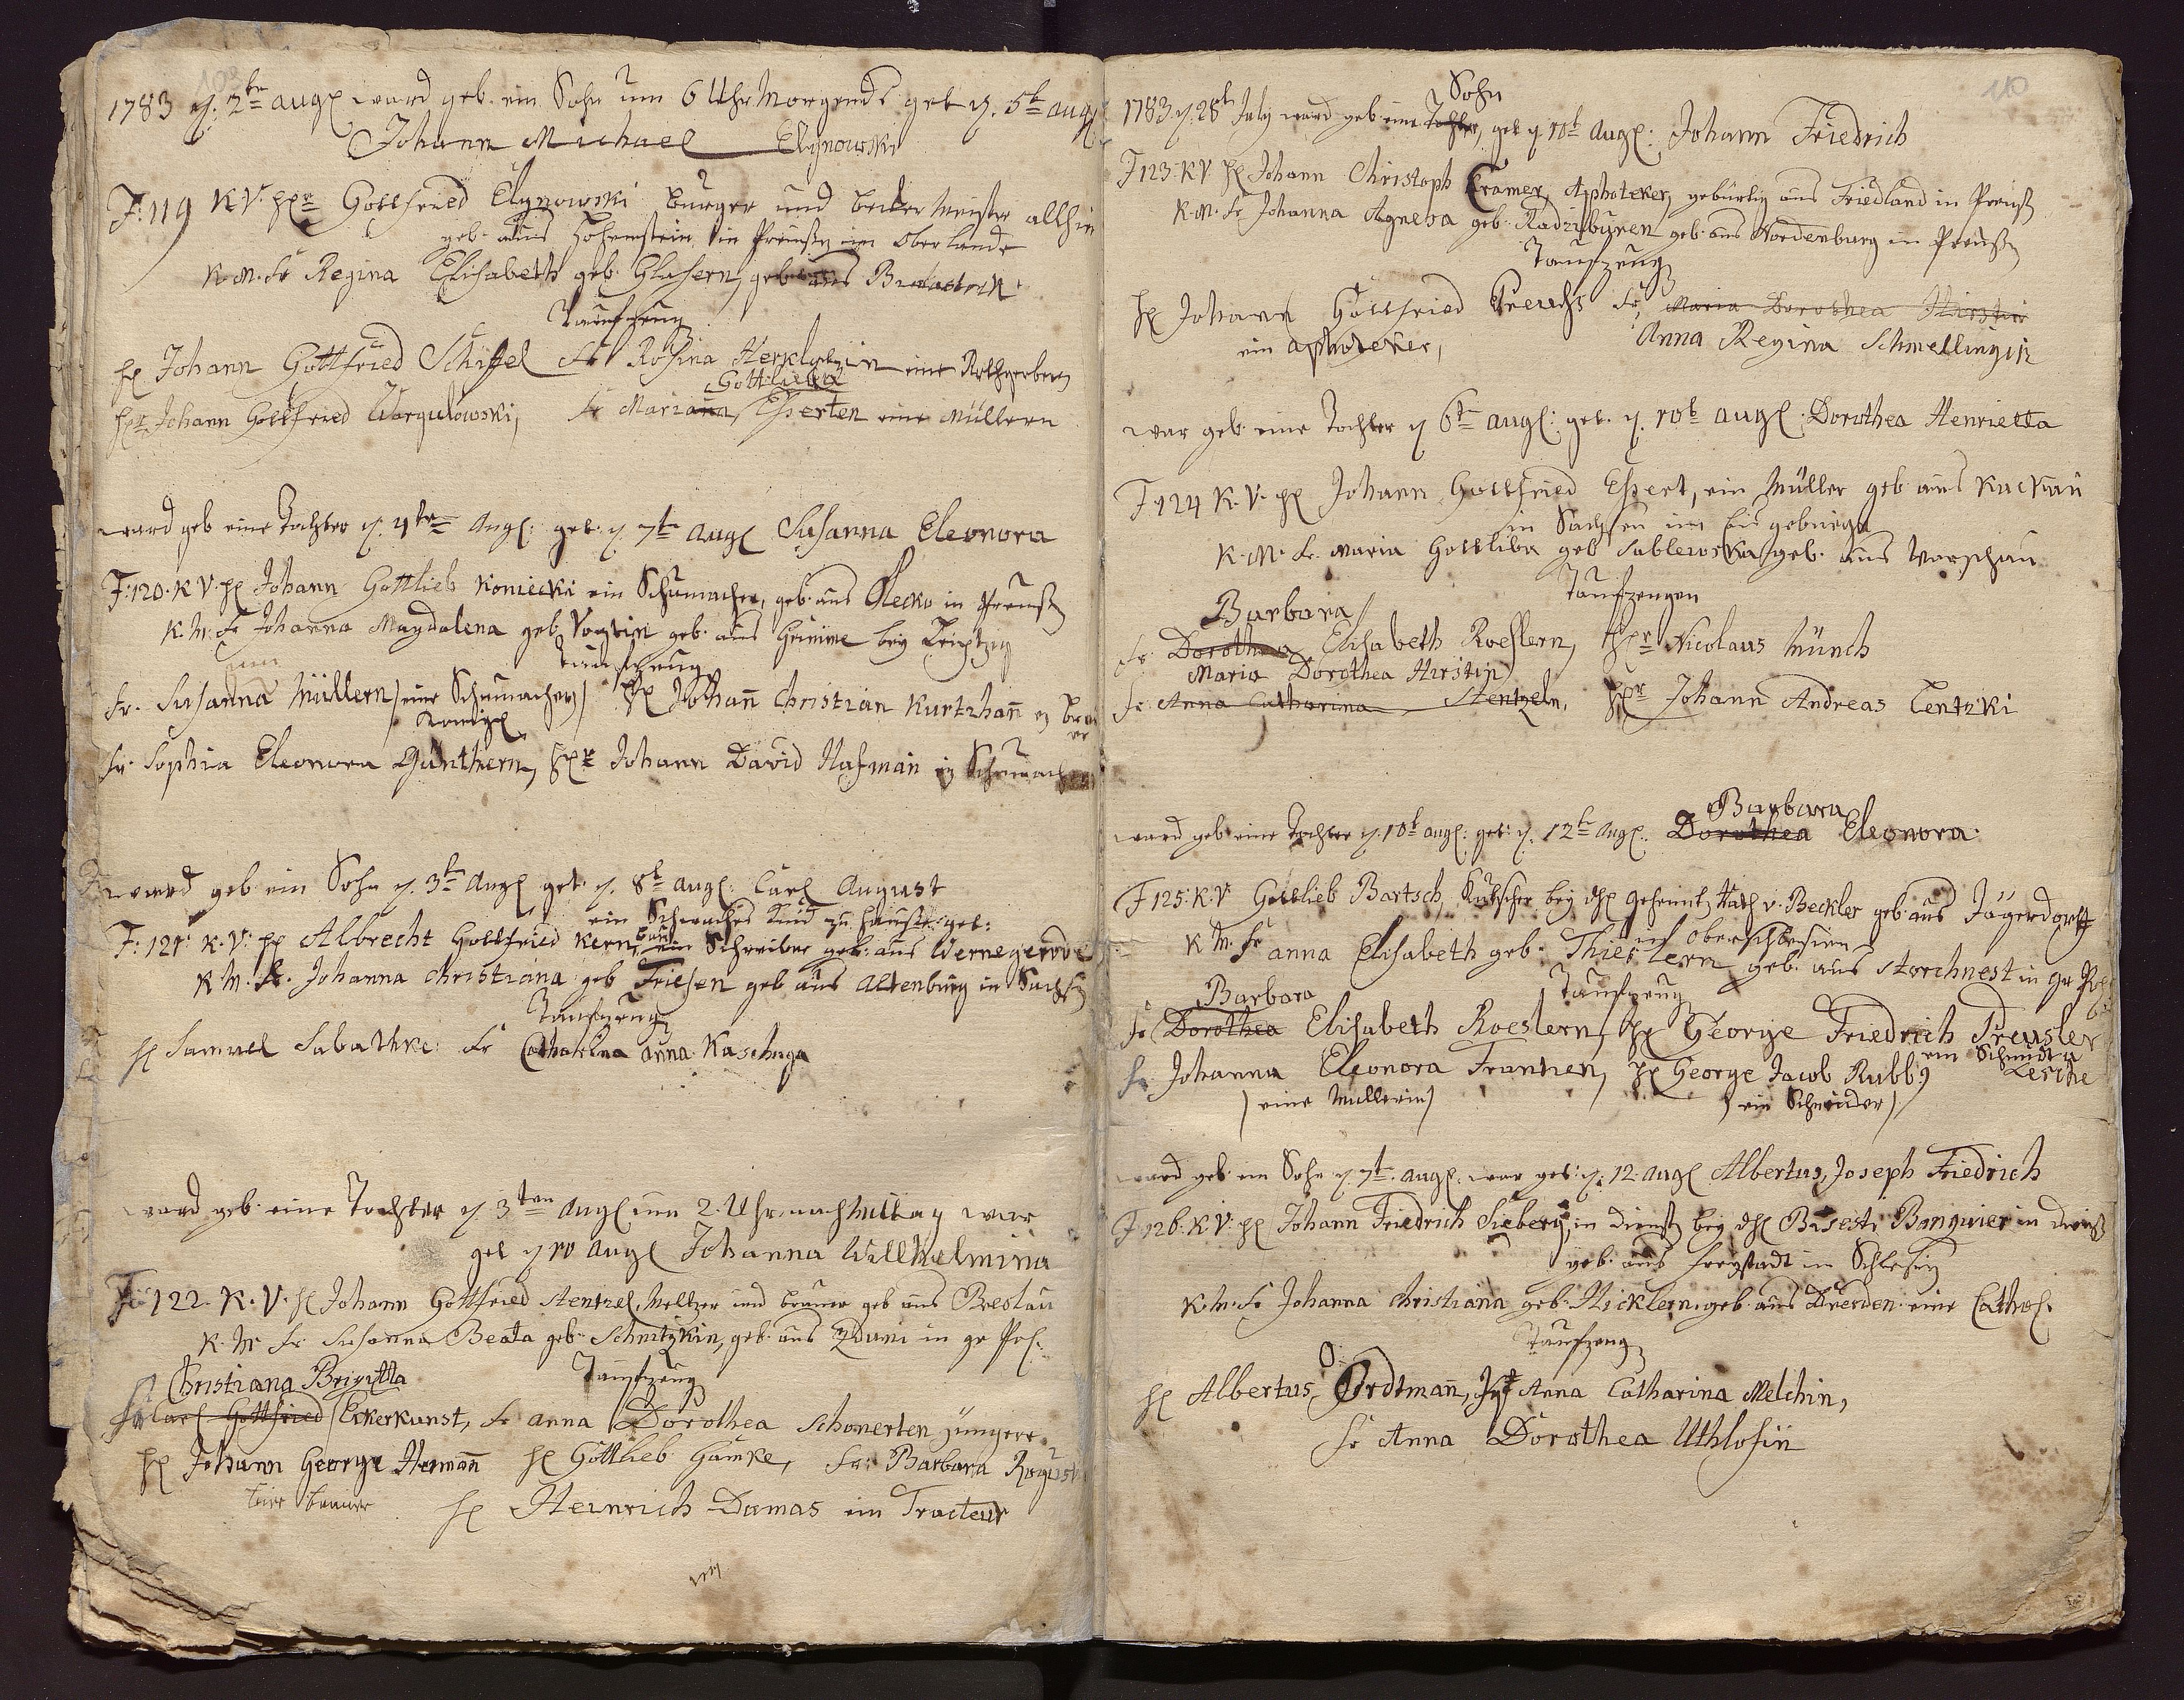 1783 d. 2te augl ward geb. ein Sohn um 6 Uhr Morgends get d. 5t augl
Johann Michael Elgnowski
F: 119 K. V. H Gottfried Elgnowski Burger und Becker Meister allhier
geb. aus Hohenstein in Preußen im Oberlande
K. M. Fr Regina Elisabeth geb. Glasern, geb. aus
Taufzeug
H Johann Gottfried Schiffel Fr Rosina eine Rothgerbern
Gottlieba
H Johann Gottfried Worgulowski, Fr Mariana Espertin eine Müllern
ward geb eine Tochter d. 4te Augl: get. d. 7t Augl Susanna Eleonora
F: 120. K V. H Johann Gottlieb Koniecki ein Schumacher, geb. aus Olecko in Preuß
K. M. Fr Johanna Magdalena geb. Vogtin geb. aus Grimme bey Leipzig
Taufzeug
Fr. Susanna Müllern (eine Schumachern) H Johann Christian Kurtzhann
Fr. Sophia Eleonora Gunthern, H Johann David Hafman ein Schumacher
ward geb ein Sohn d. 3t Augl get. d. 8t augl: Carl August
ein Schwaches Kind zu Hause get:
F: 121. K. V: H Albrecht Gottfried Kern, ein Bau Schreiber geb. aus Wernegerode
K. M. Fr. Johanna Christiana geb Friesen geb aus Altenburg in Sachsen
Taufzeug
H Samuel Sabathke Fr Catharina Anna Kaschuga
ward geb. eine Tochter d. 3ten Augl um 2. Uhr nachmittag war
get d 10 Augl Johanna Willhelmina
F: 122. K. V. H Johann Gottfried Stentzel, Meltzer und Brauer geb aus Breslau
K. M Fr Susanna Beata geb. Schnitzkin, geb. aus Zduni in gr Pol.
Christiana Brigitta Taufzeug
Fr Carl Gottfried Eckerkunst, Fr Anna Dorothea Schonerten jüngere
H Johann George Hermann H Gottlieb Gamke, Fr: Barbara
Bier brauer H Heinrich Damas ein Tracteur
110
Sohn
1783. d. 28t July ward geb. eine Tochter, get d 10t Augl: Johann Friedrich
F 123. K V H Johann Christoph Cramer, Aphoteker, gebürtig aus Friedland in Preuß
K. M. Fr Johanna Agnesa geb. Radzibÿren geb. aus Nordenburg in Preußen
Taufzeug
H Johann Gottfried Freuchs Fr, Maria Dorothea Hirstin
ein aphoteker, Anna Regina Schmellingin
war geb eine Tochter d 6t augl: get. d. 10t augl. Dorothea Henrietta
F 124 K. V. H Johann Gottfried Espert, ein Müller geb aus Kackau
in Sachsen im
K. M. Fr. Maria Gottliba geb Sablewska geb. aus Warschau
Taufzeugen
Barbara
Fr. Dorothea Elisabeth Roeslern, H Nicolaus Münch
Maria Dorothea Hirstin
Fr Anna Catharina Stentzeln, H Johann Andreas Lentzki
Barbara
ward geb eine Tochter d. 10t augl: get: d. 12t Augl. Dorothea Eleonora.
F 125: K. V Gottlieb Bartsch, Kutscher bey H geheimt Rath v. Beckler geb. aus Jägerdorff
in Oberschlesien
K M. Fr Anna Elisabeth geb. Thierlern geb. aus Storchnest in Gr Pol
Barbara Taufzeug
Fr Dorothea Elisabeth Roeslern, H George Friedrich Preusler
ein Schmidt a Leszne
Fr Johanna Eleonora Frantzen, H George Jacob Rubby
(eine Mullerin) (ein Schneider)
ward geb ein Sohn d 7t. augl. war get: d. 12. augl Albertus, Joseph Friedrich
F 126. K. V. H Johann Friedrich Sieberg, in Dienst bey H Banquier in Dienst
geb. aus Freystadt in Schlesien
K. M. Fr Johanna Christiana geb. Hicklern, geb. aus Dresden eine Cathol.
Taufzeug
H Albertus Ordtmann, Jgf Anna Catharina Melchin,
Fr Anna Dorothea Uthlosin